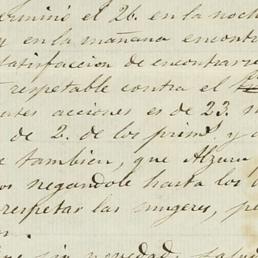 terminó el 26. en la noch
y en la mañana encontr
satisfaccion de encontrarse
respetable contra el
ntes acciones es de 23. m
de 2. de los prim.s y
e tambien, que Alzuru
os negandole hasta los
respetar las mugeres, pe
r.
que sin novedad, salud